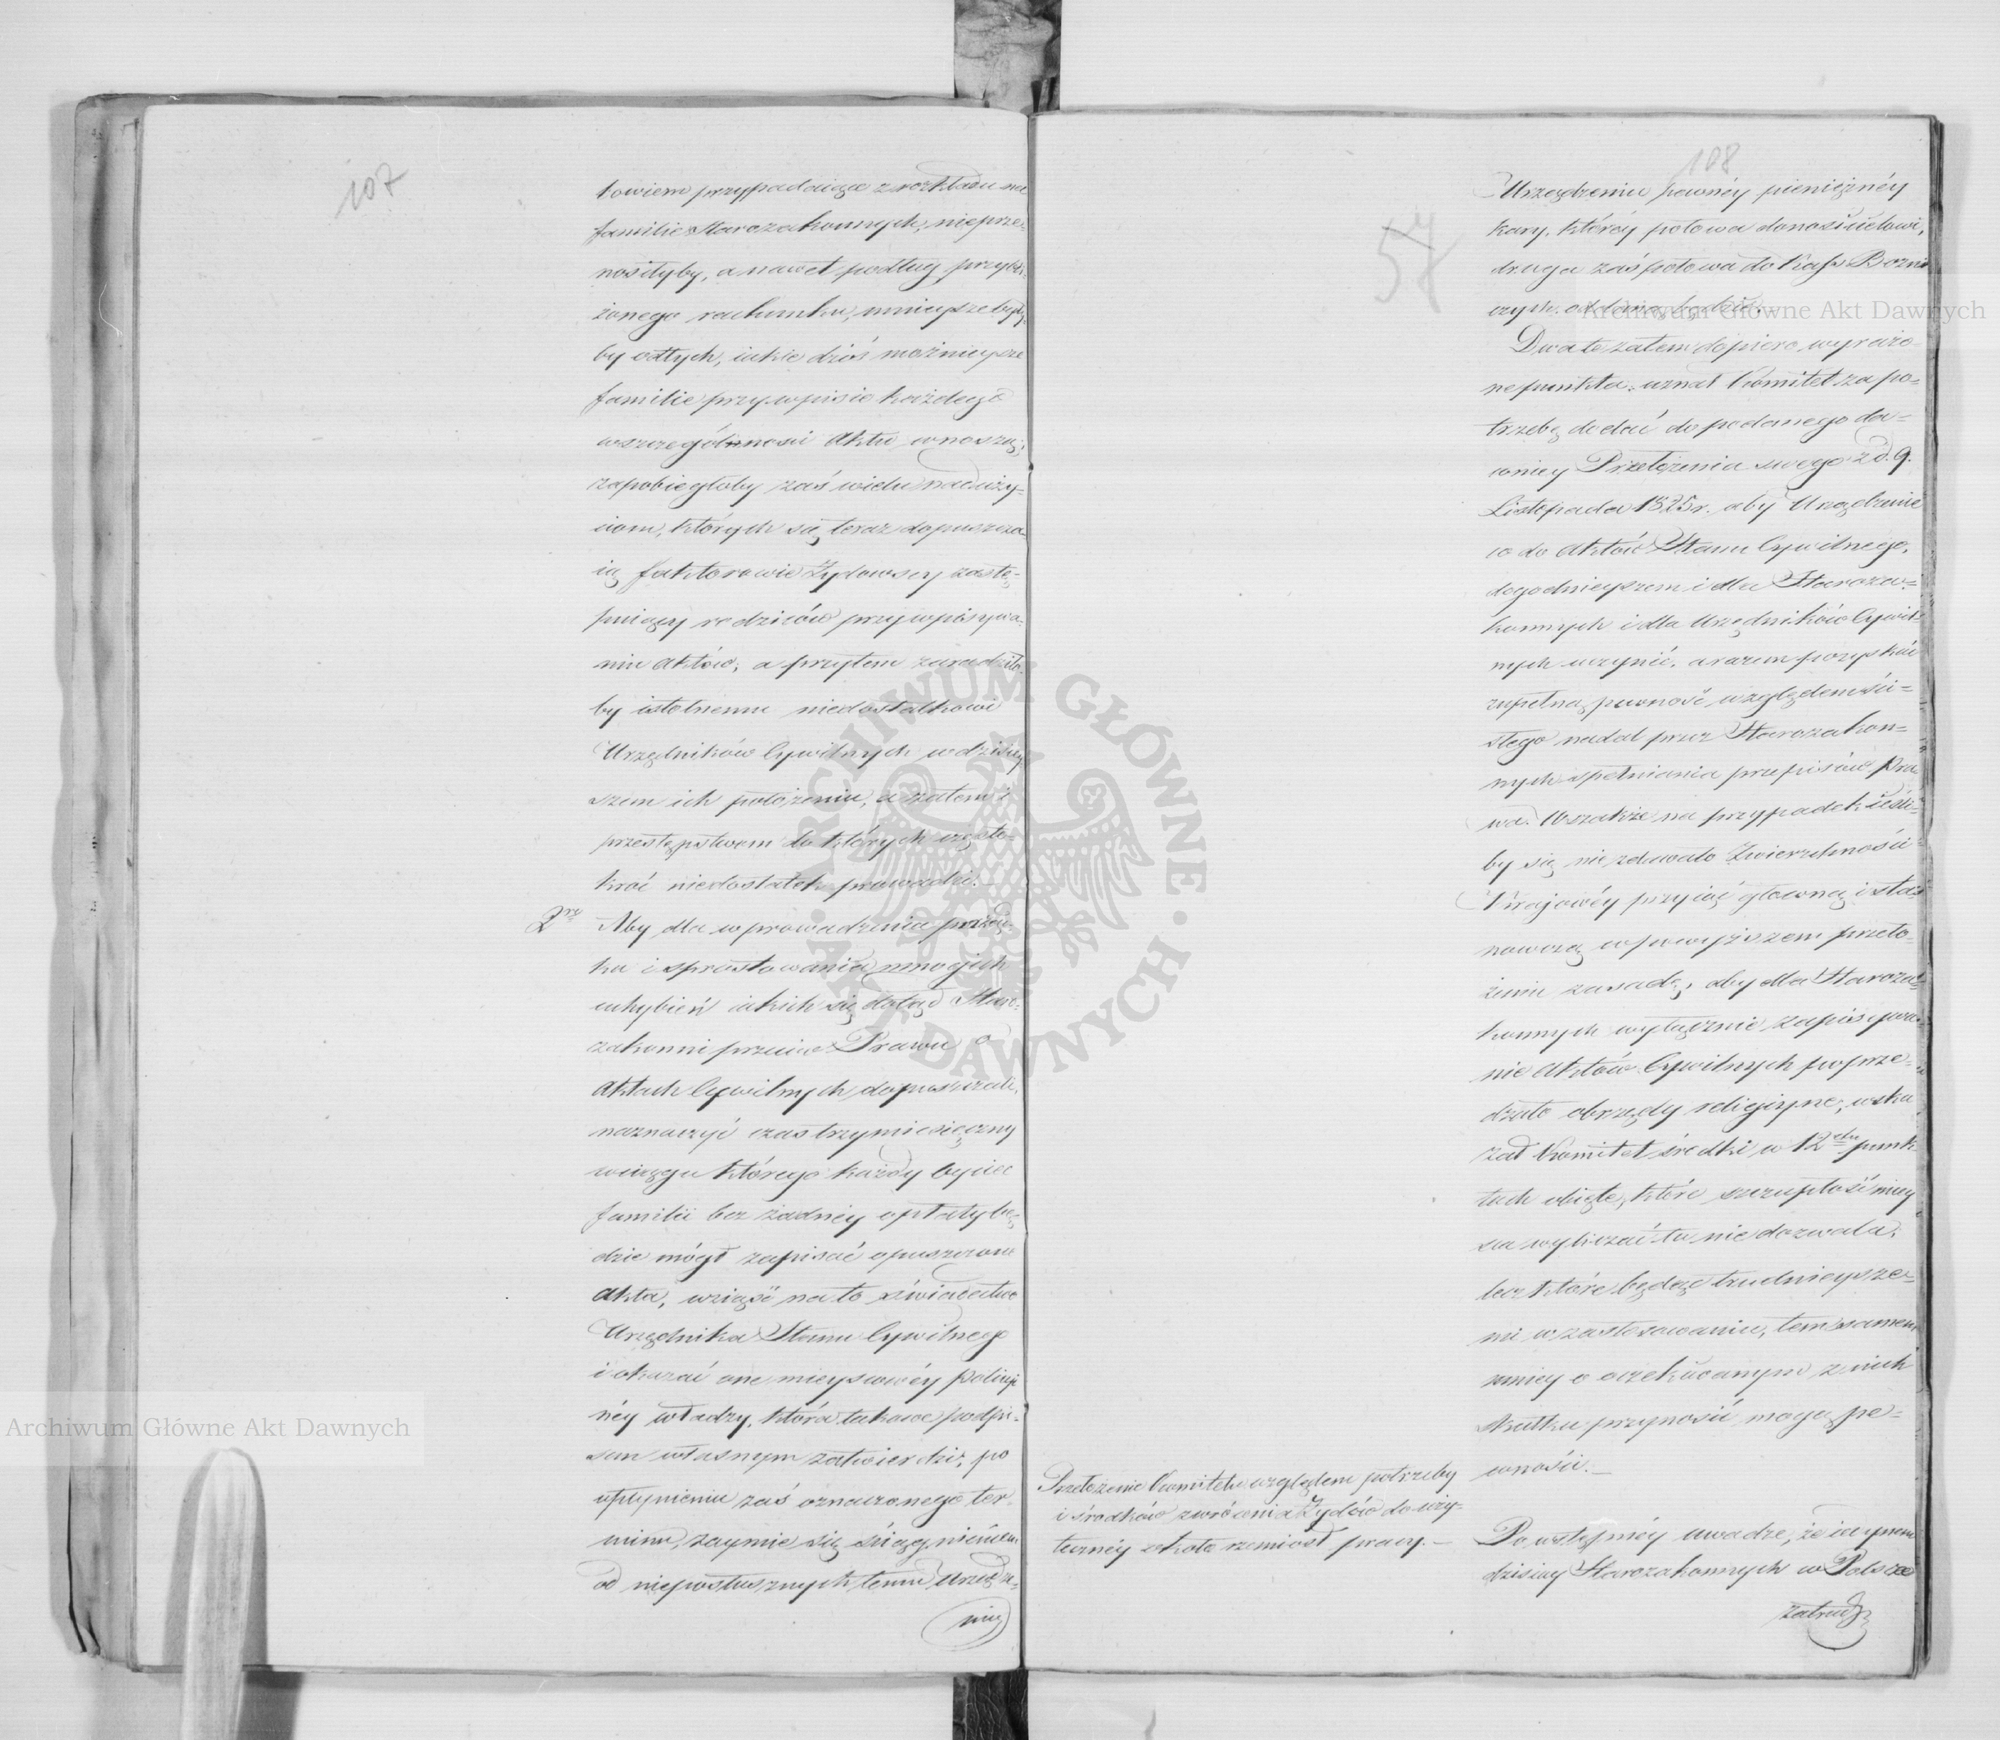 107
bowiem przypadaiące z rozkładu na
familie Starozakonnych, nieprze-
nosiłyby, a nawet podług przybli-
żonego rachunku, mnieysze były-
by od tych, iakie dziś możnieysze
familie przy wpisie każdego
w szczególnosci Aktu wnoszą;
zapobiegłoby zaś wielu naduży-
ciom, których się teraz dopuszcza-
ią faktorowie Żydowscy zastę-
puiący rodziców przy wpisywa-
niu Aktów; a przytem zaradziło-
by istotnemu niedostatkowi
Urzędników Cywilnych w dzisiey-
szem ich położeniu, a zatem i
przestępstwom do których częsta-
kroć niedostatek prowadzi.
2re Aby dla wprowadzenia porząd-
ku i sprostowania mnogich
uchybień iakich się dotąd Staro-
zakonni przeciw Prawu o
Aktach Cywilnych dopuszczali,
naznaczyć czas trzymiesięczny
w ciągu którego każdy Oyciec
familii bez żadney opłaty bę-
dzie mógł zapisać opuszczone
Akta, wziąść na to świadectwo
Urzędnika Stanu Cywilnego
i okazać one mieyscowéy policyi-
néy władzy, która takowe podpi-
sem własnym zatwierdzi; po
upłynieniu zaś oznaczonego ter-
minu, zaymie się ściągnieniem
od nieposłusznych temu Urządze-
niu
108
57
Urządzeniu pewnéy pieniężnéy
kary, któréy połowa donosicielowi,
druga zaś połowa do Kass Bożni-
czych oddaną będzie.
Dwa te zatem dopiero wyrażo-
ne punkta, uznał Komitet za po-
trzebę dodać do podanego da-
wniey Przełożenia swego z d. 9.
Listopada 1825 r. aby Urządzenie
co do Aktów Stanu Cywilnego,
dogodnieyszem i dla Staroza-
konnych i dla Urzędników Cywil-
nych uczynić, a razem pozyskać
zupełną pewność względem ści-
słego nadal przez Starozakon-
nych spełniania przepisów Pra-
wa. Wszakże na przypadek ieśli-
by się nie zdawało Zwierzchności
Kraiowéy przyiąć główną i sta-
nowczą w powyższem przeło-
żeniu zasadę, aby dla Staroza-
konnych wyłącznie zapisywa-
nie Aktów Cywilnych poprze-
dzało obrzędy religiyne, wska-
zał Komitet środki w 12stu punk-
tach obięte, które szczupłość miey-
sca wyliczać tu nie dozwala;
lecz które będąc trudnieysze-
mi w zastosowaniu, tem samem
mniey o oczekiwanym z nich
skutku przynosić mogą pe-
wności.
Przełożenie Komitetu względem potrzeby
i środków zwrócenia Żydów do uży-
teczney około rzemiosł pracy.
Po wstępnéy uwadze, że iedynem
dzisiay Starozakonnych w Polsce
zatrud-
Archiwum Główne Akt Dawnych
Archiwum Główne Akt Dawnych
ARCHIWUM GŁÓWNE
AKT DAWNYCH